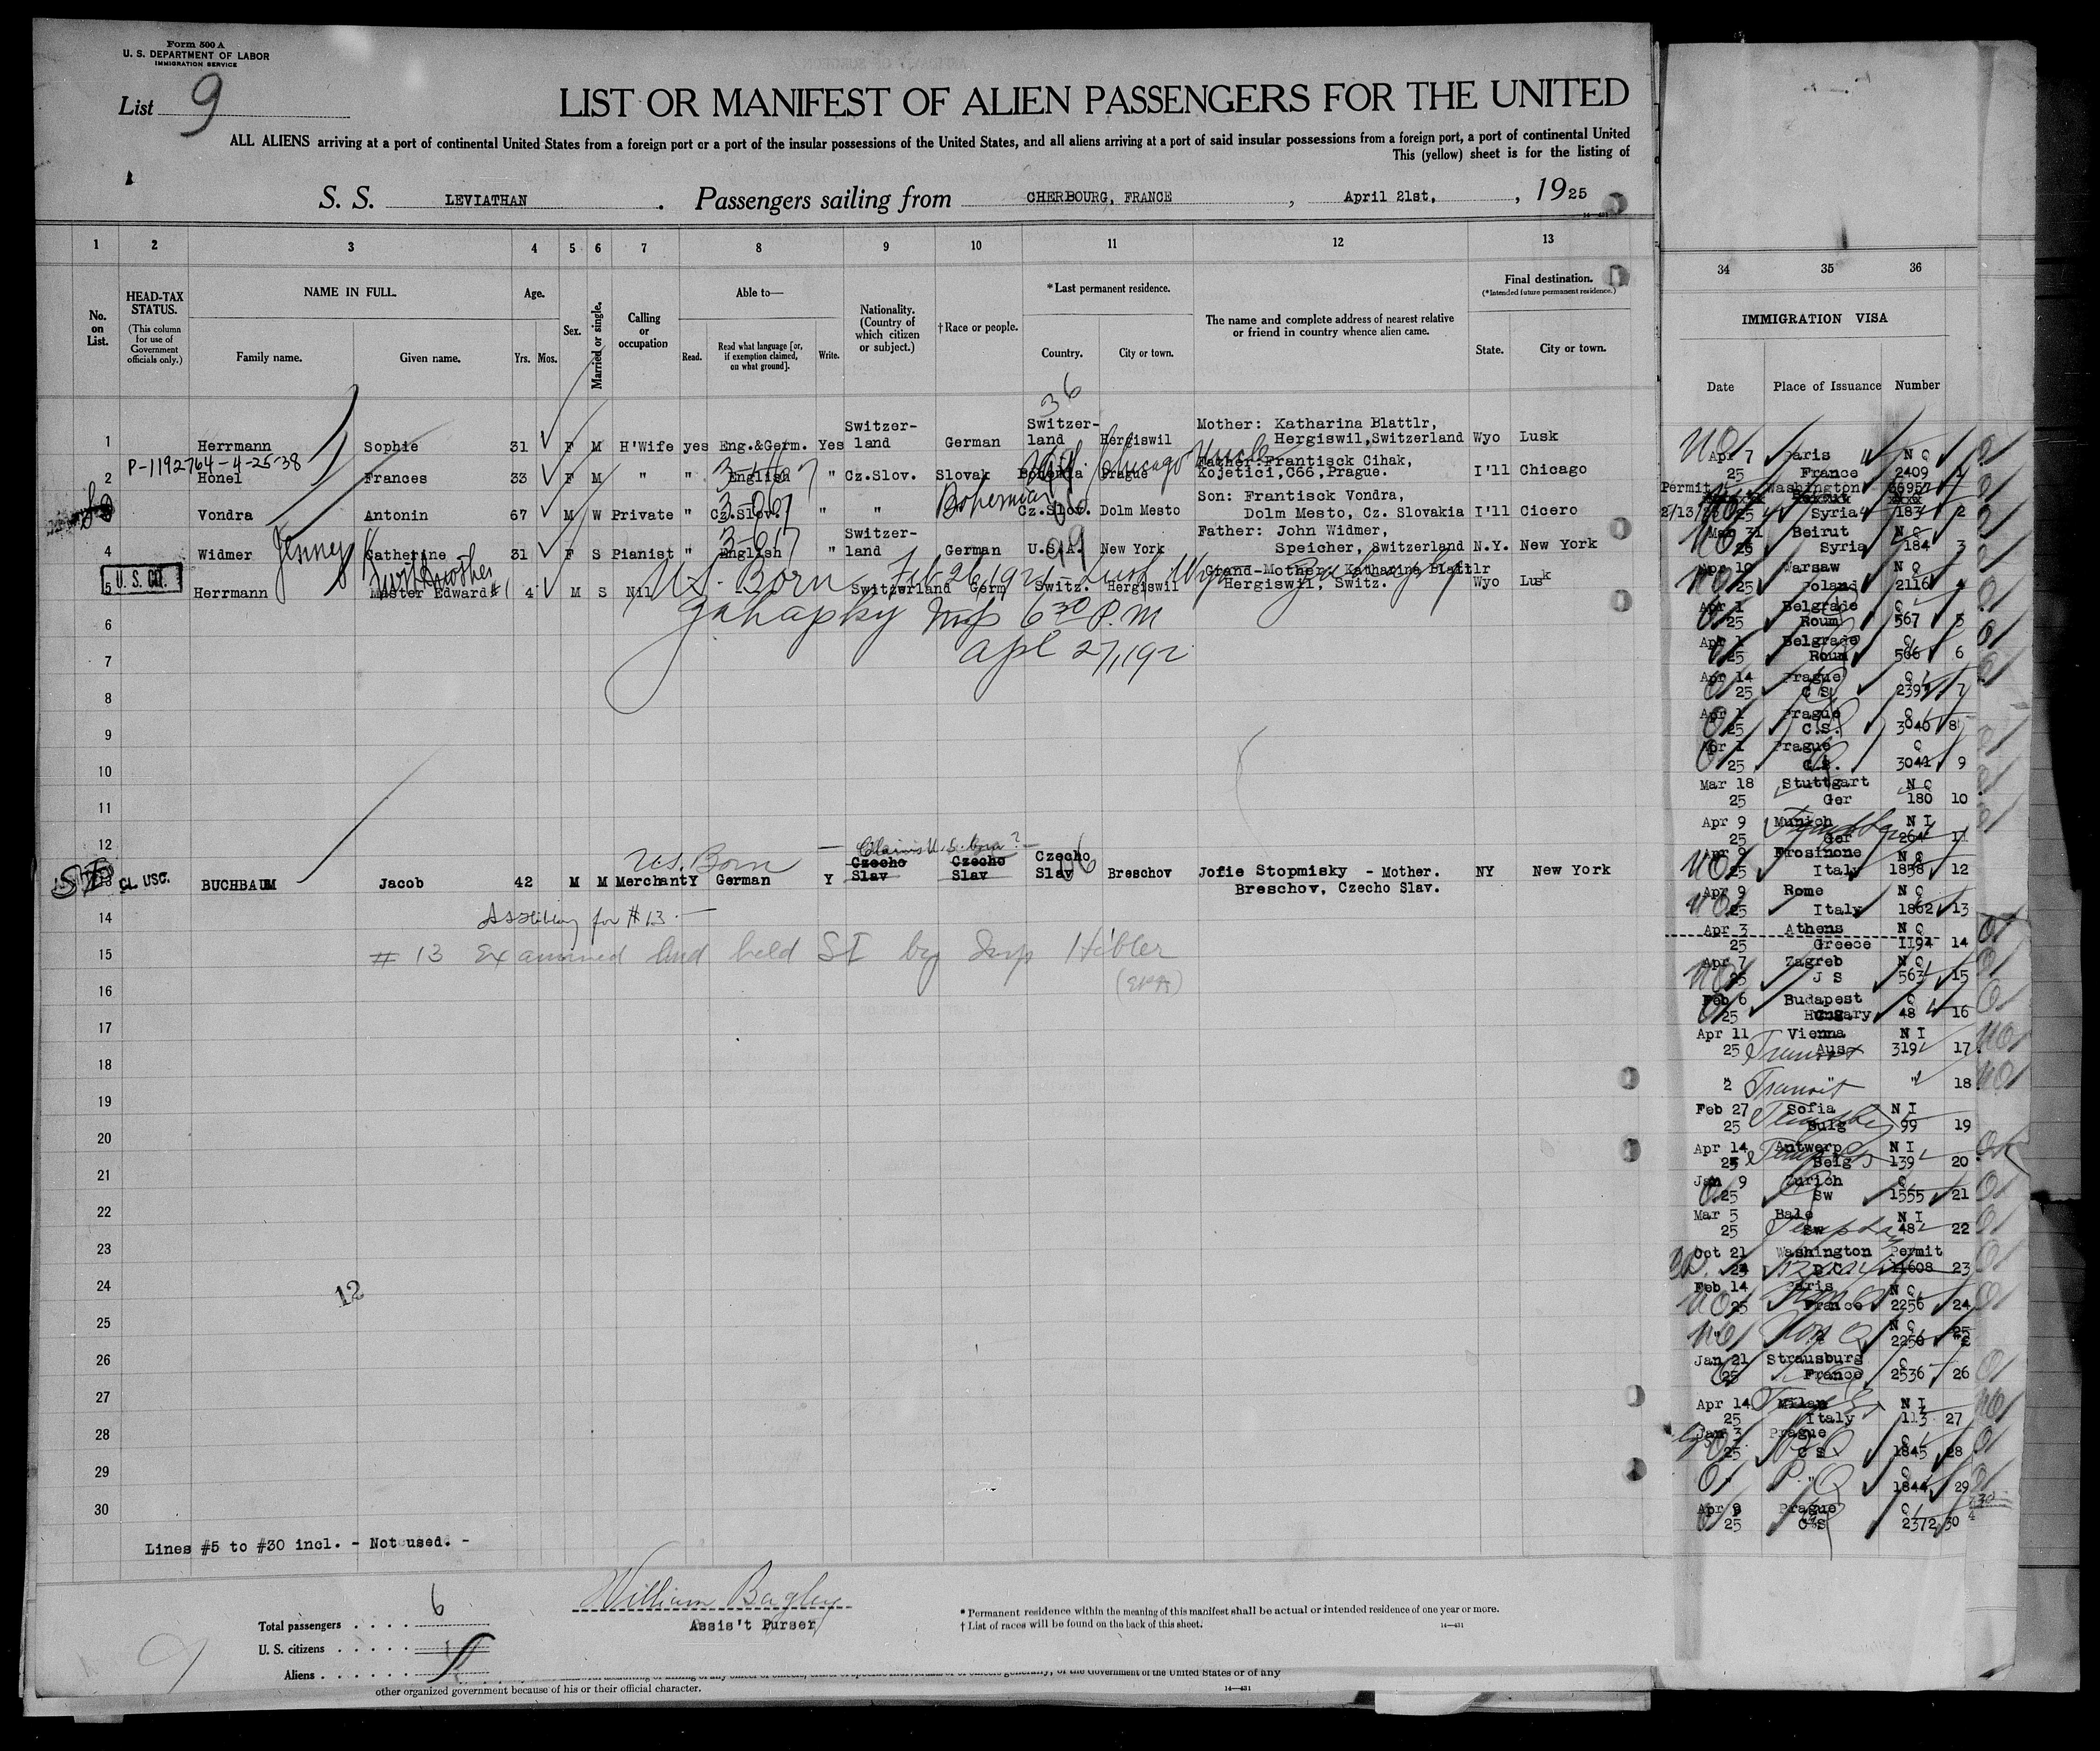 Form 500 A
U. S. DEPARTMENT OF LABOR
IMMIGRATION SERVICE
List 9
LIST OR MANIFEST OF ALIEN PASSENGERS FOR THE UNITED
ALL ALIENS arriving at a port of continental United States from a foreign port or a port of the insular possessions of the United States, and all aliens arriving at a port of said insular possessions from a foreign port, a port of continental United
This (yellow) sheet is for the listing of
S. S. LEVIATHAN . Passengers sailing from CHERBOURG, FRANCE , April 21st. , 1925
1 2 3 4 5 6 7 8 9 10 11 12 13
No. on List.
HEAD-TAX STATUS.
(This column for use of Government officials only.)
NAME IN FULL.
Family name. Given name.
Age.
Yrs. Mos.
Sex.
Married or single.
Calling or occupation
Able to—
Read. Read what language [or, if exemption claimed, on what ground]. Write.
Nationality. (Country of which citizen or subject.)
†Race or people.
*Last permanent residence.
Country. City or town.
The name and complete address of nearest relative or friend in country whence alien came.
Final destination.
(*Intended future permanent residence.)
State. City or town.
36
1 Herrmann Sophie 31 F M H'Wife yes Eng.&Germ. Yes Switzer-land German Switzer-land Hergiswil Mother: Katharina Blattlr, Hergiswil,Switzerland Wyo Lusk
P-1192764-4-25-38
2 Honel Frances 33 F M " " English " Cz.Slov. Slovak Bohemia Prague Father:Frantisck Cihak, Kojetici,C66,Prague. I'll Chicago
Chicago Uncle
Vondra Antonin 67 M W Private " Cz.Slov. " " Bohemian Cz.Slov. Dolm Mesto Son: Frantisck Vondra, Dolm Mesto, Cz. Slovakia I'll Cicero
4 Widmer Jenney Catherine 31 F S Pianist " English " Switzer-land German U.S.A. New York Father: John Widmer, Speicher, Switzerland N.Y. New York
99
U.S. CIT.
5 Herrmann Master Edward #1 4 M S Nil Switzerland Germ Switz. Hergiswil Grand-Mother: Katharina Blattlr Hergiswil, Switz. Wyo Lusk
with mother
U.S. Born Feb 26 192 Lusk Wyo
6 Insp 6 30 P.M
7 Apl 27, 192
8
9
10
11
12
U.S. Born — Claims U.S. born? —
SI CL USC.
BUCHBAUM Jacob 42 M M Merchant Y German Y Czecho Slav Czecho Slav Czecho Slav Breschov Jofie Stopmisky - Mother. Breschov, Czecho Slav. NY New York
14 for #13. —
15 # 13 Examined and held SI by Insp Hibler
16
17
18
19
20
21
22
23
24 12
25
26
27
28
29
30
Lines #5 to #30 incl. - Not used. -
Total passengers . . . . 6
U. S. citizens . . . . .
Aliens . . . . . .
William Bagley
Assis't Purser
* Permanent residence within the meaning of this manifest shall be actual or intended residence of one year or more.
† List of races will be found on the back of this sheet.
14—431
of the Government of the United States or of any
other organized government because of his or their official character.
14—431
34 35 36
IMMIGRATION VISA
Date Place of Issuance Number
Apr 7 Paris N Q
25 France 2409 1
Permit Washington 66957
2/13/ 25 Syria 183 2
Mar 31 Beirut N Q
25 Syria 184 3
Apr 10 Warsaw N Q
25 Poland 2116 4
Apr 1 Belgrade Q
25 Roum 567 5
Apr 1 Belgrade Q
25 Roum 566 6
Apr 14 Prague Q
25 C S 239 7
Apr 1 Prague Q
25 C.S. 3040 8
Apr 1 Prague Q
25 C.S. 3041 9
Mar 18 Stuttgart N Q
25 Ger 180 10
Apr 9 Munich N I
25 Ger 264 11
Apr 9 Frosinone N Q
25 Italy 1858 12
Apr 9 Rome N Q
25 Italy 1862 13
Apr 3 Athens N Q
25 Greece 1194 14
Apr 7 Zagreb N Q
25 J S 563 15
Feb 6 Budapest Q
25 Hungary 48 16
Apr 11 Vienna N I
25 Transit Aus 319 17
" Transit " 18
Feb 27 Sofia N I
25 Bulg 99 19
Apr 14 Antwerp N I
25 Belg 139 20
Jan 9 Zurich Q
25 Sw 1555 21
Mar 5 Bale N I
25 Sw 48 22
Oct 21 Washington Permit
24 D.C. 11608 23
Feb 14 Paris N Q
25 France 2256 24
" Non Q N Q 25
2256
Jan 21 Strausburg Q
25 France 2536 26
Apr 14 Milan N I
25 Italy 113 27
Jan 3 Prague Q
25 C S 1845 28
" " Q
1844 29
Apr 9 Prague Q
25 C S 2372 30